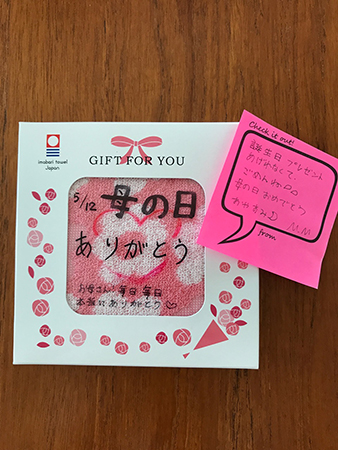 imabari towel
Japan
GIFT FOR YOU
5/12 母の日
ありがとう
お母さん! 毎日毎日
本当にありがとう♡
Check it out!
誕生日プレゼント
あげれなくて、
ごめんね
母の日おめでとう
from